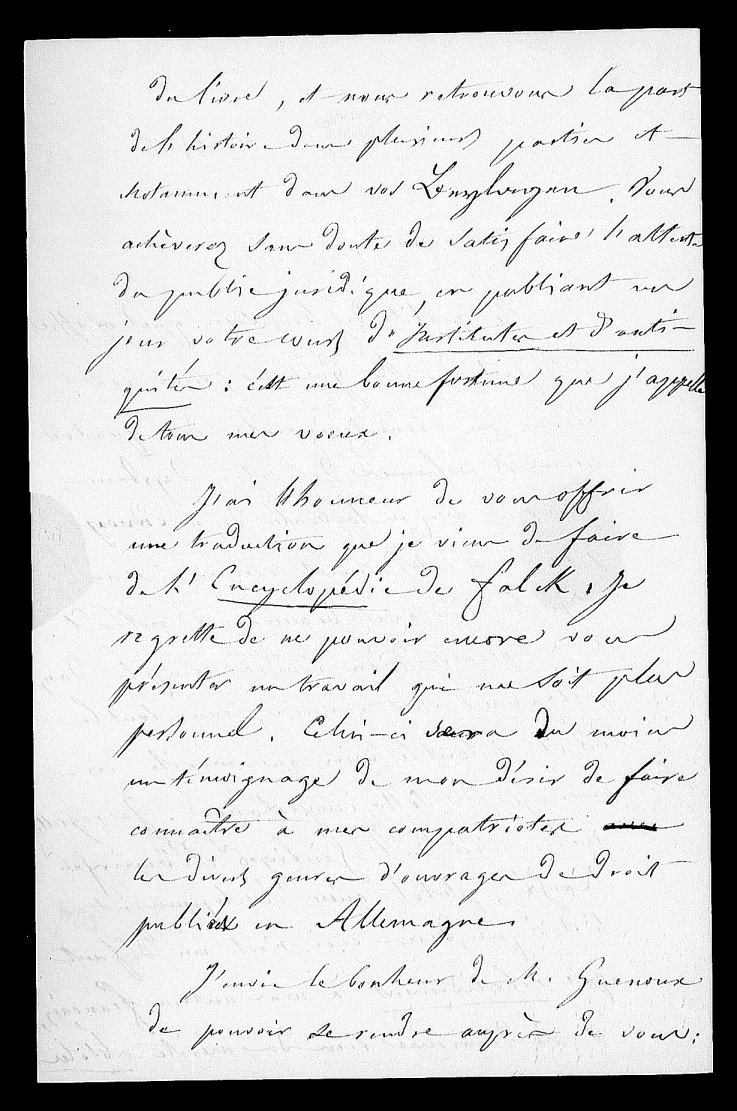 du livre, et nous retrouvons la part
de l'histoire dans plusieurs parties et
notamment dans vos Beylagen. Vous
achèverez sans doute de satisfaire l'attente
du public juridique, en publiant un
jour votre cours d'Institutes et d'anti-
quités : c'est une bonne fortune que j'appelle
de tous mes voeux.
J'ai l'honneur de vous offrir
une traduction que je viens de faire
de l'Encyclopédie de Falck. Je
regrette de ne pouvoir encore vous
présenter un travail qui me soit plus
personnel. Celui-ci sera du moins
un témoignage de mon désir de faire
connaître à mes compatriotes
les divers genres d'ouvrages de droit
publiés en Allemagne.
J'envie le bonheur de M. Guenoux
de pouvoir se rendre auprès de vous;